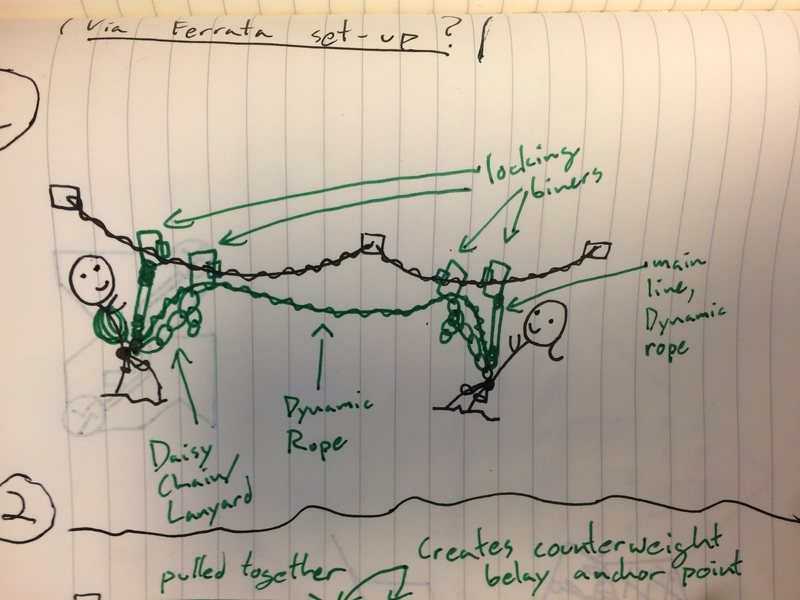 (Via Ferrata set-up?)
locking
biners
main
line,
Dynamic
rope
Dynamic
Rope
Daisy
Chain/
Lanyard
2
pulled together
Creates counterweight
belay anchor point